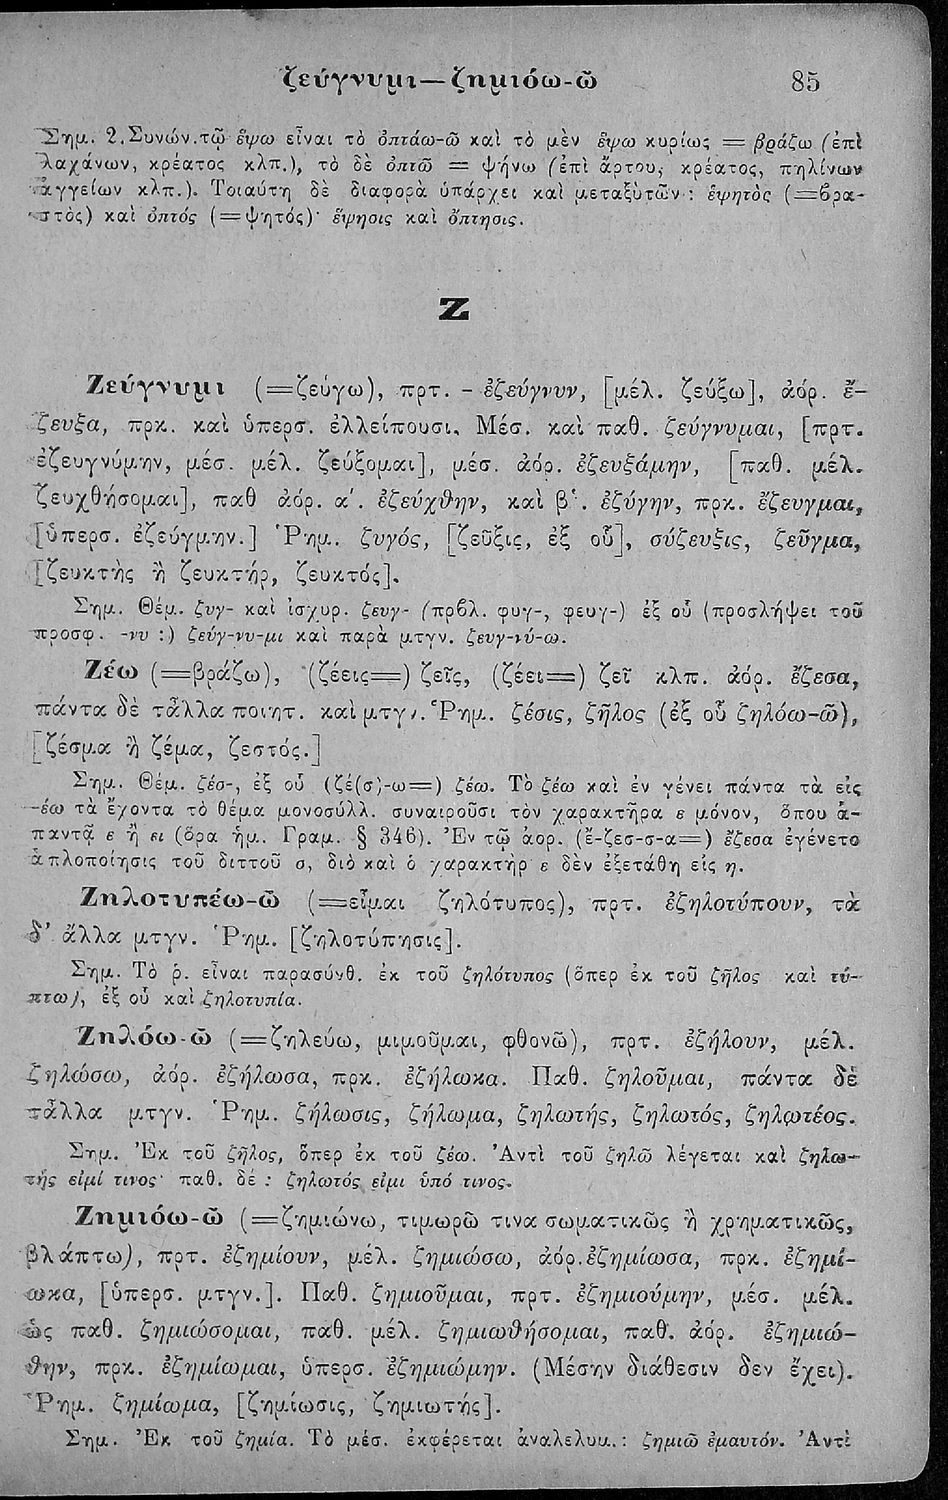 ζεύγνυμι—ζημιόω-ῶ 85
Σημ. 2. Συνών. τῷ ἕψω εἶναι τὸ ὀπτάω-ῶ καὶ τὸ μὲν ἕψω κυρίως = βράζω (ἐπὶ
λαχάνων, κρέατος κλπ.), τὸ δὲ ὀπτῶ = ψήνω (ἐπὶ ἄρτου, κρέατος, πηλίνων
ἀγγείων κλπ.). Τοιαύτη δὲ διαφορὰ ὑπάρχει καὶ μεταξὺ τῶν : ἑψητὸς (=βρα-
στὸς) καὶ ὀπτός (=ψητός)· ἕψησις καὶ ὄπτησις.
Ζ
Ζεύγνυμι (=ζεύγω), πρτ. - ἐζεύγνυν, [μέλ. ζεύξω], ἀόρ. ἔ-
ζευξα, πρκ. καὶ ὑπερσ. ἐλλείπουσι. Μέσ. καὶ παθ. ζεύγνυμαι, [πρτ.
ἐζευγνύμην, μέσ. μέλ. ζεύξομαι], μέσ. ἀόρ. ἐζευξάμην, [παθ. μέλ.
ζευχθήσομαι], παθ ἀόρ. α΄. ἐζεύχθην, καὶ β΄. ἐζύγην, πρκ. ἔζευγμαι,
[ὑπερσ. ἐζεύγμην.] Ῥημ. ζυγός, [ζεῦξις, ἐξ οὗ], σύζευξις, ζεῦγμα,
[ζευκτὴς ἢ ζευκτήρ, ζευκτός].
Σημ. Θέμ. ζυγ- καὶ ἰσχυρ. ζευγ- (πρβλ. φυγ-, φευγ-) ἐξ οὗ (προσλήψει τοῦ
προσφ. -νυ :) ζεύγ-νυ-μι καὶ παρὰ μτγν. ζευγ-νύ-ω.
Ζέω (=βράζω), (ζέεις=) ζεῖς, (ζέει=) ζεῖ κλπ. ἀόρ. ἔζεσα,
πάντα δὲ τἆλλα ποιητ. καὶ μτγν. Ῥημ. ζέσις, ζῆλος (ἐξ οὗ ζηλόω-ῶ),
[ζέσμα ἢ ζέμα, ζεστός.]
Σημ. Θέμ. ζέσ-, ἐξ οὗ (ζέ(σ)-ω=) ζέω. Τὸ ζέω καὶ ἐν γένει πάντα τὰ εἰς
-έω τὰ ἔχοντα τὸ θέμα μονοσύλλ. συναιροῦσι τὸν χαρακτῆρα ε μόνον, ὅπου ἀ-
παντᾷ ε ἢ ει (ὅρα ἡμ. Γραμ. § 346). Ἐν τῷ ἀορ. (ἔ-ζεσ-σ-α=) ἔζεσα ἐγένετο
ἁπλοποίησις τοῦ διττοῦ σ, διὸ καὶ ὁ χαρακτὴρ ε δὲν ἐξετάθη εἰς η.
Ζηλοτυπέω-ῶ (=εἶμαι ζηλότυπος), πρτ. ἐζηλοτύπουν, τὰ
δ’ ἄλλα μτγν. Ῥημ. [ζηλοτύπησις].
Σημ. Τὸ ῥ. εἶναι παρασύνθ. ἐκ τοῦ ζηλότυπος (ὅπερ ἐκ τοῦ ζῆλος καὶ τύ-
πτω), ἐξ οὗ καὶ ζηλοτυπία.
Ζηλόω-ῶ (=ζηλεύω, μιμοῦμαι, φθονῶ), πρτ. ἐζήλουν, μέλ.
ζηλώσω, ἀόρ. ἐζήλωσα, πρκ. ἐζήλωκα. Παθ. ζηλοῦμαι, πάντα δὲ
τἆλλα μτγν. Ῥημ. ζήλωσις, ζήλωμα, ζηλωτής, ζηλωτός, ζηλωτέος.
Σημ. Ἐκ τοῦ ζῆλος, ὅπερ ἐκ τοῦ ζέω. Ἀντὶ τοῦ ζηλῶ λέγεται καὶ ζηλω-
τής εἰμί τινος· παθ. δέ : ζηλωτός εἰμι ὑπό τινος.
Ζημιόω-ῶ (=ζημιώνω, τιμωρῶ τινα σωματικῶς ἢ χρηματικῶς,
βλάπτω), πρτ. ἐζημίουν, μέλ. ζημιώσω, ἀόρ. ἐζημίωσα, πρκ. ἐζημί-
ωκα, [ὑπερσ. μτγν.]. Παθ. ζημιοῦμαι, πρτ. ἐζημιούμην, μέσ. μέλ.
ὡς παθ. ζημιώσομαι, παθ. μέλ. ζημιωθήσομαι, παθ. ἀόρ. ἐζημιώ-
θην, πρκ. ἐζημίωμαι, ὑπερσ. ἐζημιώμην. (Μέσην διάθεσιν δεν ἔχει).
Ῥημ. ζημίωμα, [ζημίωσις, ζημιωτής].
Σημ. Ἐκ τοῦ ζημία. Τὸ μέσ. ἐκφέρεται ἀναλελυμ. : ζημιῶ ἐμαυτόν. Ἀντὶ